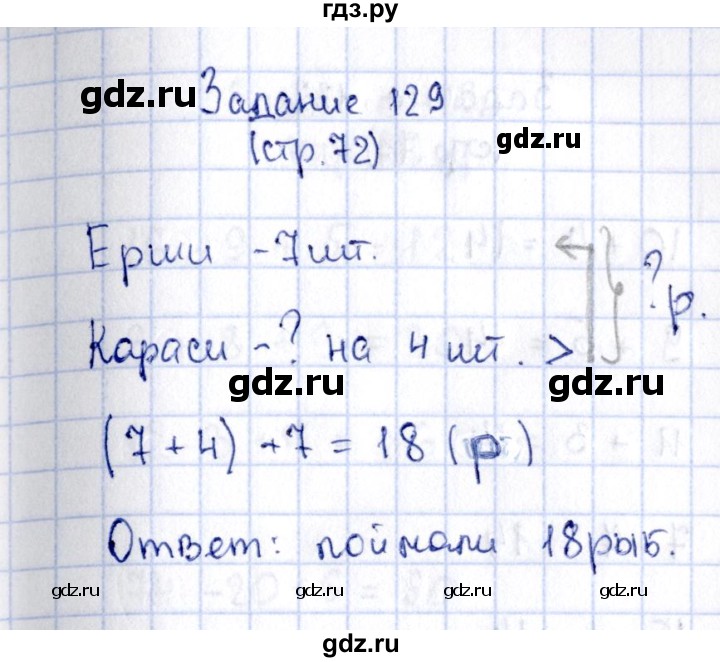 гдз.ру
gdz.ru
Задание 129
gdz.ru
(стр. 72)
Ерши - 7 шт.
? р.
Караси - ? на 4 шт. >
gdz.ru gdz.ru
(7 + 4) + 7 = 18 (р)
Ответ: поймали 18 рыб.
gdz.ru gdz.ru gdz.ru
gdz.ru